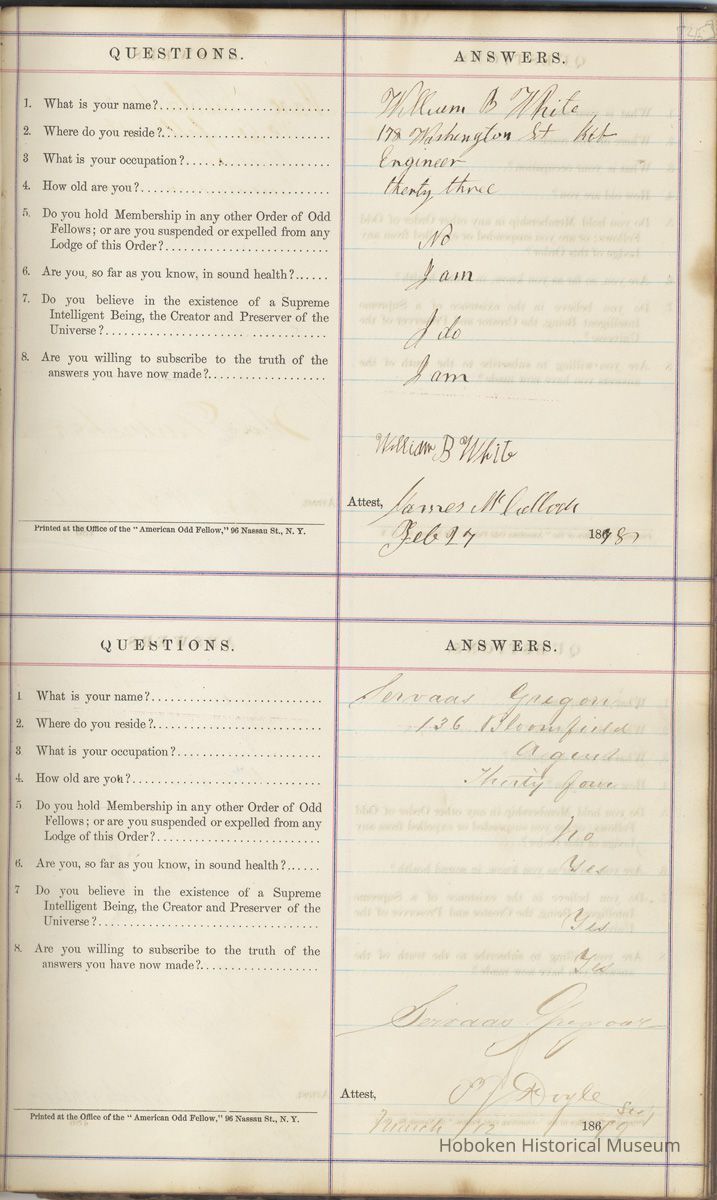 QUESTIONS. ANSWERS.
1. What is your name?.............................. William B White
2. Where do you reside?.............................. 178 Washington St Hob
3 What is your occupation?.............................. Engineer
4. How old are you?.............................. thirty three
5. Do you hold Membership in any other Order of Odd
Fellows; or are you suspended or expelled from any
Lodge of this Order?.............................. No
6. Are you, so far as you know, in sound health?...... I am
7. Do you believe in the existence of a Supreme
Intelligent Being, the Creator and Preserver of the
Universe?.............................. I do
8. Are you willing to subscribe to the truth of the
answers you have now made?.................. I am
William B White
Attest, James McCulloch
Printed at the Office of the "American Odd Fellow," 96 Nassau St., N. Y.
Feb 27 1878
QUESTIONS. ANSWERS.
1 What is your name?.............................. Servaas Gregoor
2. Where do you reside?.............................. 136 Bloomfield
3 What is your occupation?.............................. Agent
4. How old are you?.............................. Thirty four
5 Do you hold Membership in any other Order of Odd
Fellows; or are you suspended or expelled from any
Lodge of this Order?.............................. No
6. Are you, so far as you know, in sound health?...... Yes
7 Do you believe in the existence of a Supreme
Intelligent Being, the Creator and Preserver of the
Universe?.............................. Yes
8. Are you willing to subscribe to the truth of the
answers you have now made?.................. Yes
Servaas Gregoor
Attest, Doyle
Printed at the Office of the "American Odd Fellow," 96 Nassau St., N. Y.
March 186
Hoboken Historical Museum